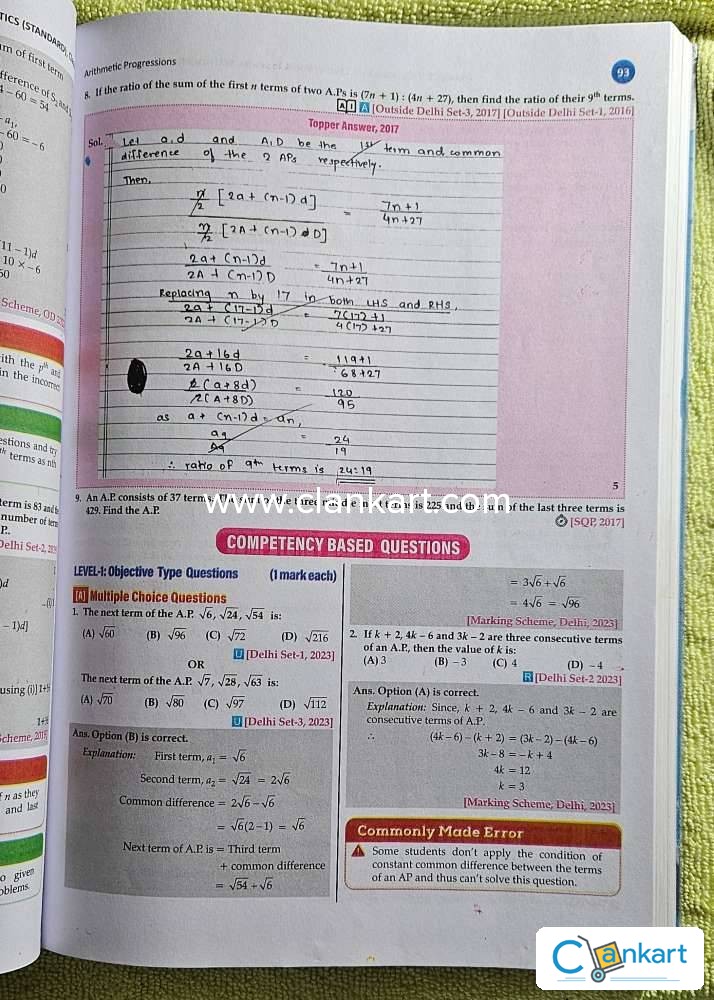 TICS (STANDARD),
m of first term
fference of S
4 – 60 = 54
a₁,
– 60 = –6
11 – 1)d
10 × –6
50
Scheme, OD
ith the pth and
in the incorrect
estions and try
th terms as nth
term is 83 and
number of
P.
Delhi Set-2,
– 1)d]
using (i)] 1+½
1+½
Scheme,
f n as they
and last
o given
oblems.
Arithmetic Progressions
93
8. If the ratio of the sum of the first n terms of two A.Ps is (7n + 1) : (4n + 27), then find the ratio of their 9th terms.
A I A [Outside Delhi Set-3, 2017] [Outside Delhi Set-1, 2016]
Topper Answer, 2017
Sol. Let a,d and A,D be the 1st term and common
difference of the 2 APs respectively.
Then,
n/2 [2a + (n-1)d] / n/2 [2A + (n-1) D] = 7n+1 / 4n+27
2a + (n-1)d / 2A + (n-1)D = 7n+1 / 4n+27
Replacing n by 17 in both LHS and RHS,
2a + (17-1)d / 2A + (17-1)D = 7(17)+1 / 4(17)+27
2a+16d / 2A+16D = 119+1 / 68+27
2(a+8d) / 2(A+8D) = 120 / 95
as a + (n-1)d = an,
a9 / A9 = 24 / 19
∴ ratio of 9th terms is 24:19
5
9. An A.P. consists of 37 terms. The sum of the three middle most terms is 225 and the sum of the last three terms is
429. Find the A.P.
[SQP, 2017]
www.clankart.com
COMPETENCY BASED QUESTIONS
LEVEL-1: Objective Type Questions (1 mark each)
[A] Multiple Choice Questions
1. The next term of the A.P. √6, √24, √54 is:
(A) √60 (B) √96 (C) √72 (D) √216
U [Delhi Set-1, 2023]
OR
The next term of the A.P. √7, √28, √63 is:
(A) √70 (B) √80 (C) √97 (D) √112
U [Delhi Set-3, 2023]
Ans. Option (B) is correct.
Explanation: First term, a₁ = √6
Second term, a₂ = √24 = 2√6
Common difference = 2√6 – √6
= √6(2–1) = √6
Next term of A.P. is = Third term
+ common difference
= √54 + √6
= 3√6 + √6
= 4√6 = √96
[Marking Scheme, Delhi, 2023]
2. If k + 2, 4k – 6 and 3k – 2 are three consecutive terms
of an A.P., then the value of k is:
(A) 3 (B) –3 (C) 4 (D) –4
R [Delhi Set-2 2023]
Ans. Option (A) is correct.
Explanation: Since, k + 2, 4k – 6 and 3k – 2 are
consecutive terms of A.P.
∴ (4k–6) – (k + 2) = (3k – 2) – (4k–6)
3k – 8 = –k + 4
4k = 12
k = 3
[Marking Scheme, Delhi, 2023]
Commonly Made Error
Some students don't apply the condition of
constant common difference between the terms
of an AP and thus can't solve this question.
Clankart